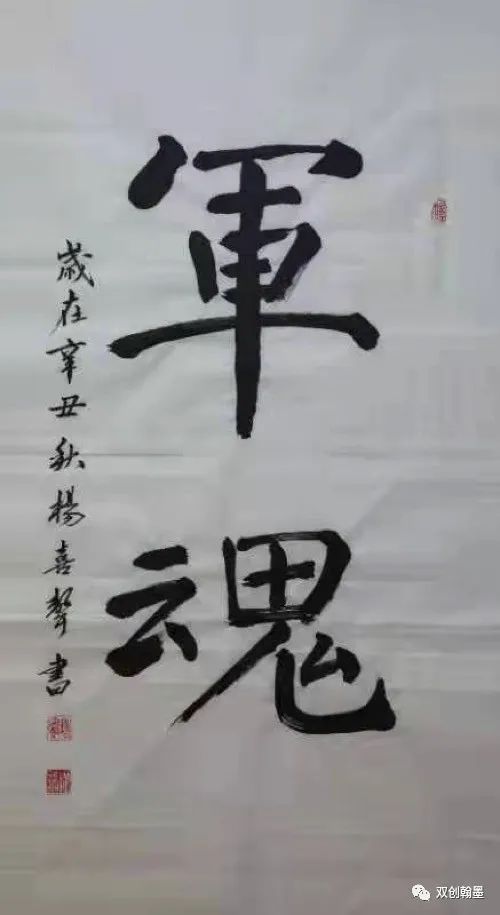 軍魂
歲在辛丑秋楊喜聲書
双创翰墨